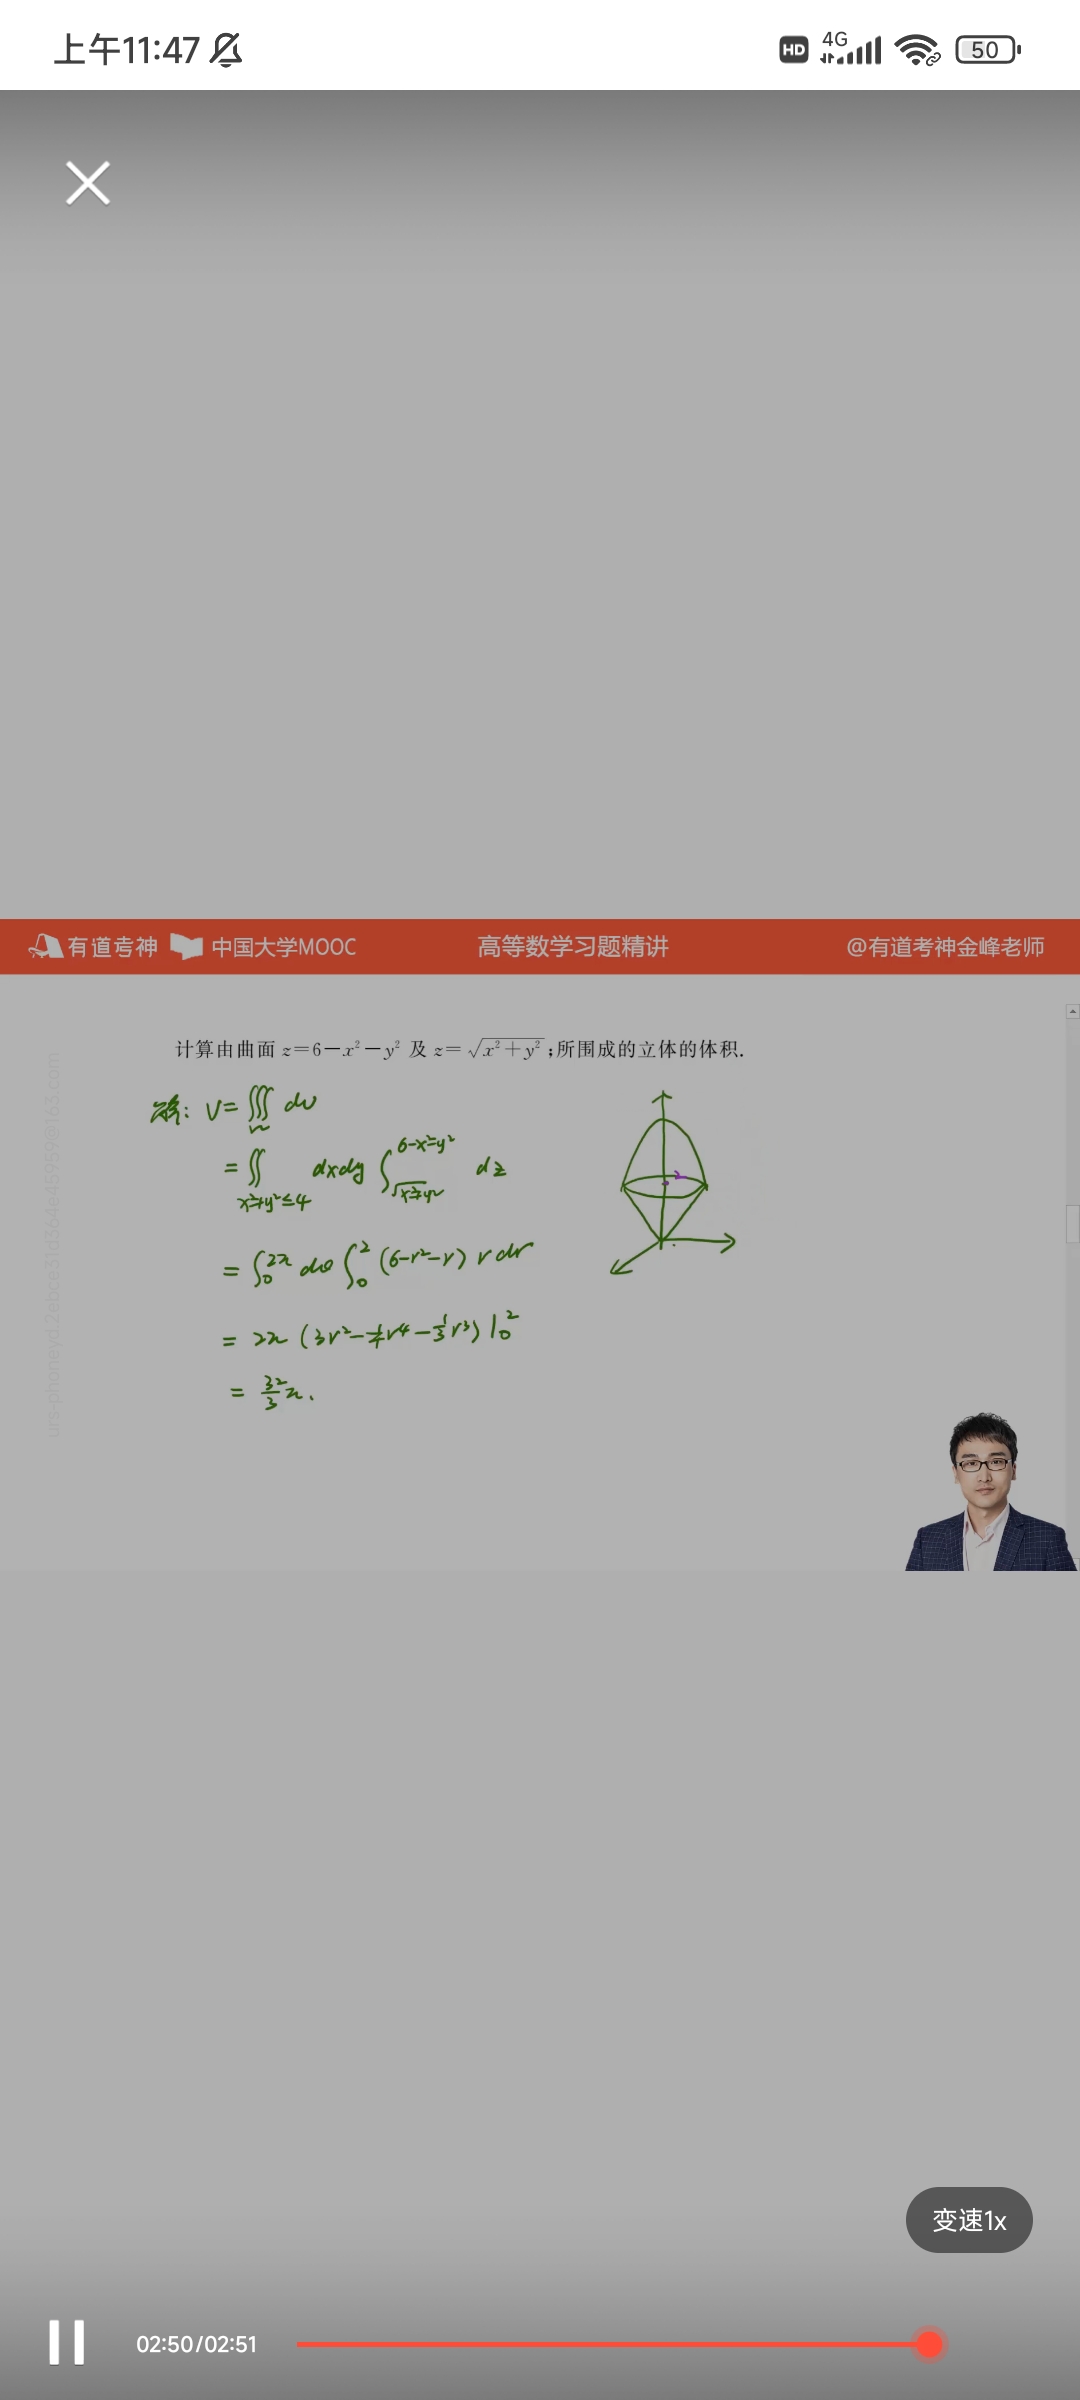 上午11:47 HD 4G 50
有道考神 中国大学MOOC 高等数学习题精讲 @有道考神金峰老师
计算由曲面 z=6-x²-y² 及 z=√(x²+y²);所围成的立体的体积.
解: V=∭dv
=∬ dxdy ∫ dz
6-x²-y²
√x²+y²
x²+y²≤4
2
=∫₀^2π dθ ∫₀² (6-r²-r) r dr
= 2π (3r²-¼r⁴-⅓r³)|₀²
= 32/3 π.
变速1x
02:50/02:51